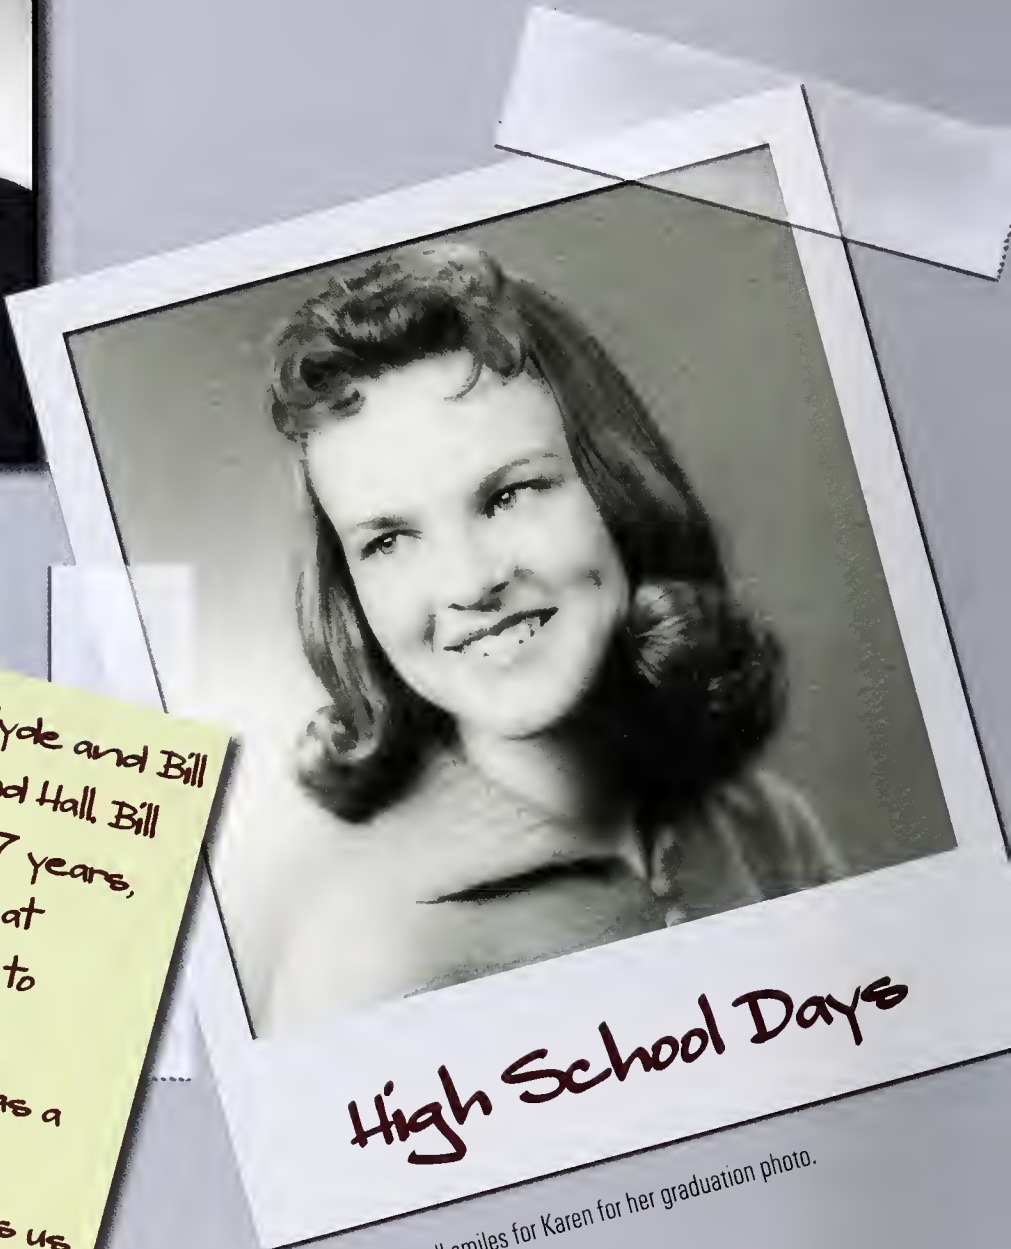 and Bill
Hall. Bill
7 years,
at
to
as a
us
High School Days
smiles for Karen for her graduation photo.